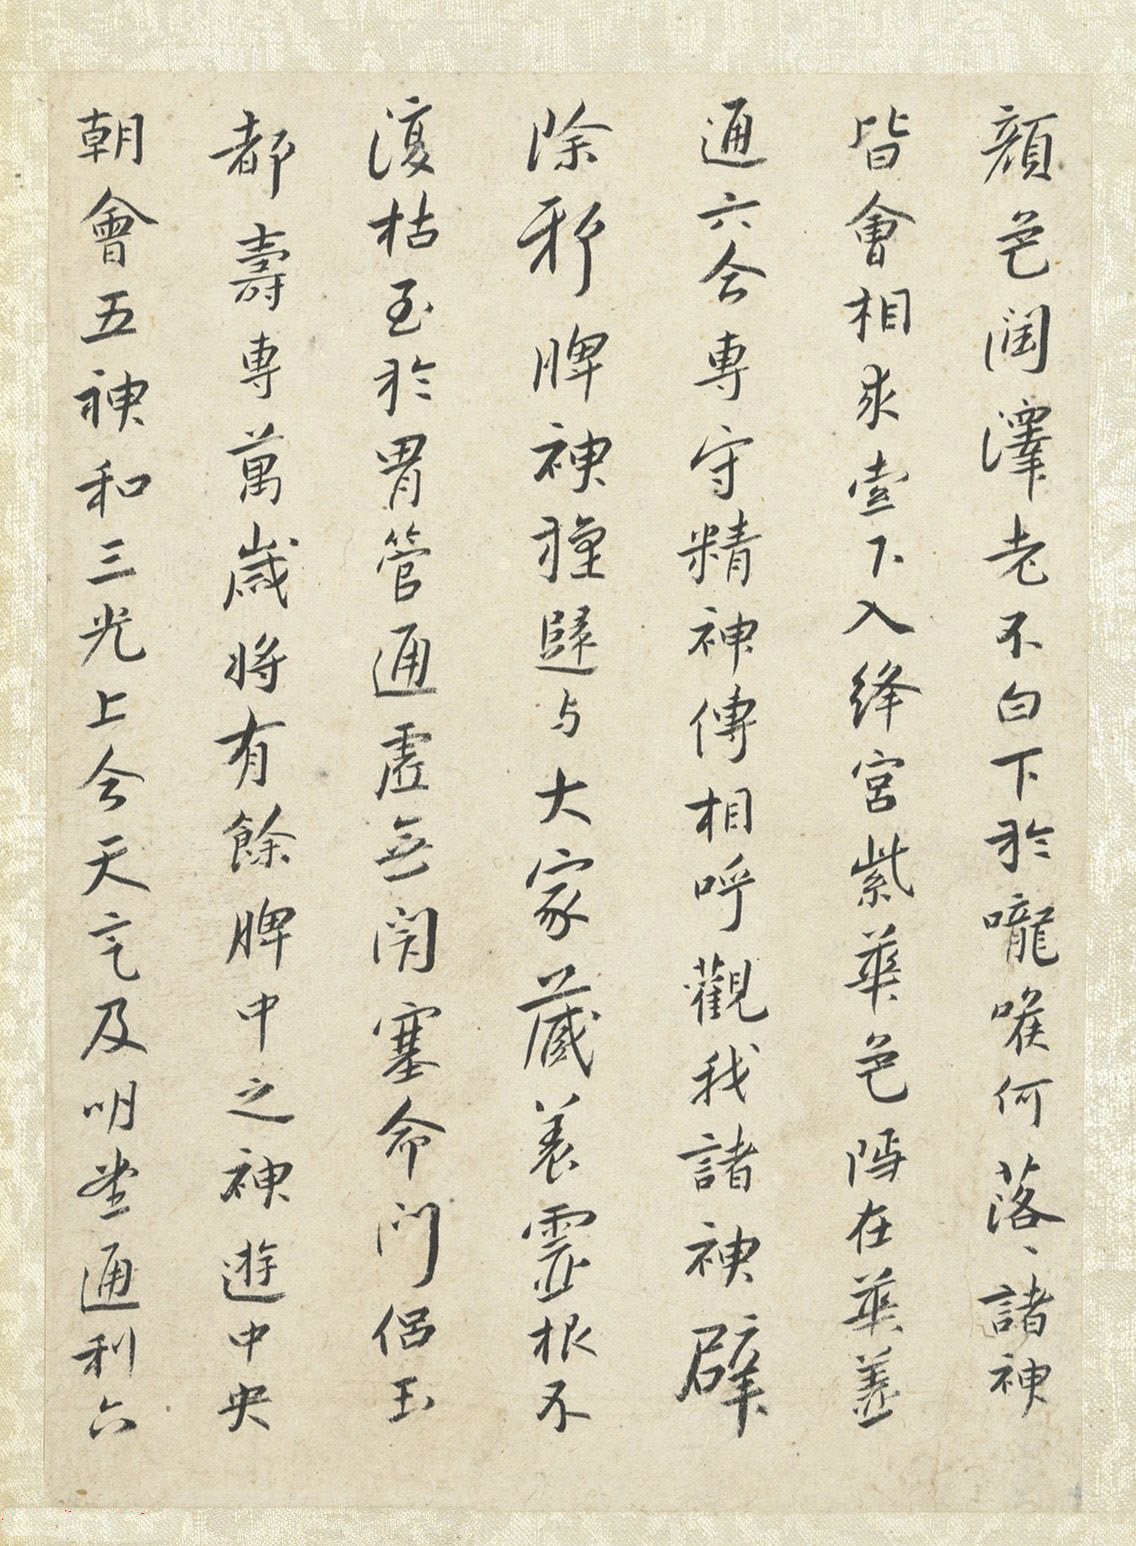 顏色潤澤老不白下於嚨喉何落〻諸神
皆會相求壹下入絳宮紫華色隱在華蓋
通六合專守精神傳相呼觀我諸神辟
除邪脾神還歸与大家藏養靈根不
復枯至於胃管通虛無閉塞命門侶玉
都壽專萬歲將有餘脾中之神遊中央
朝會五神和三光上合天氣及明堂通利六